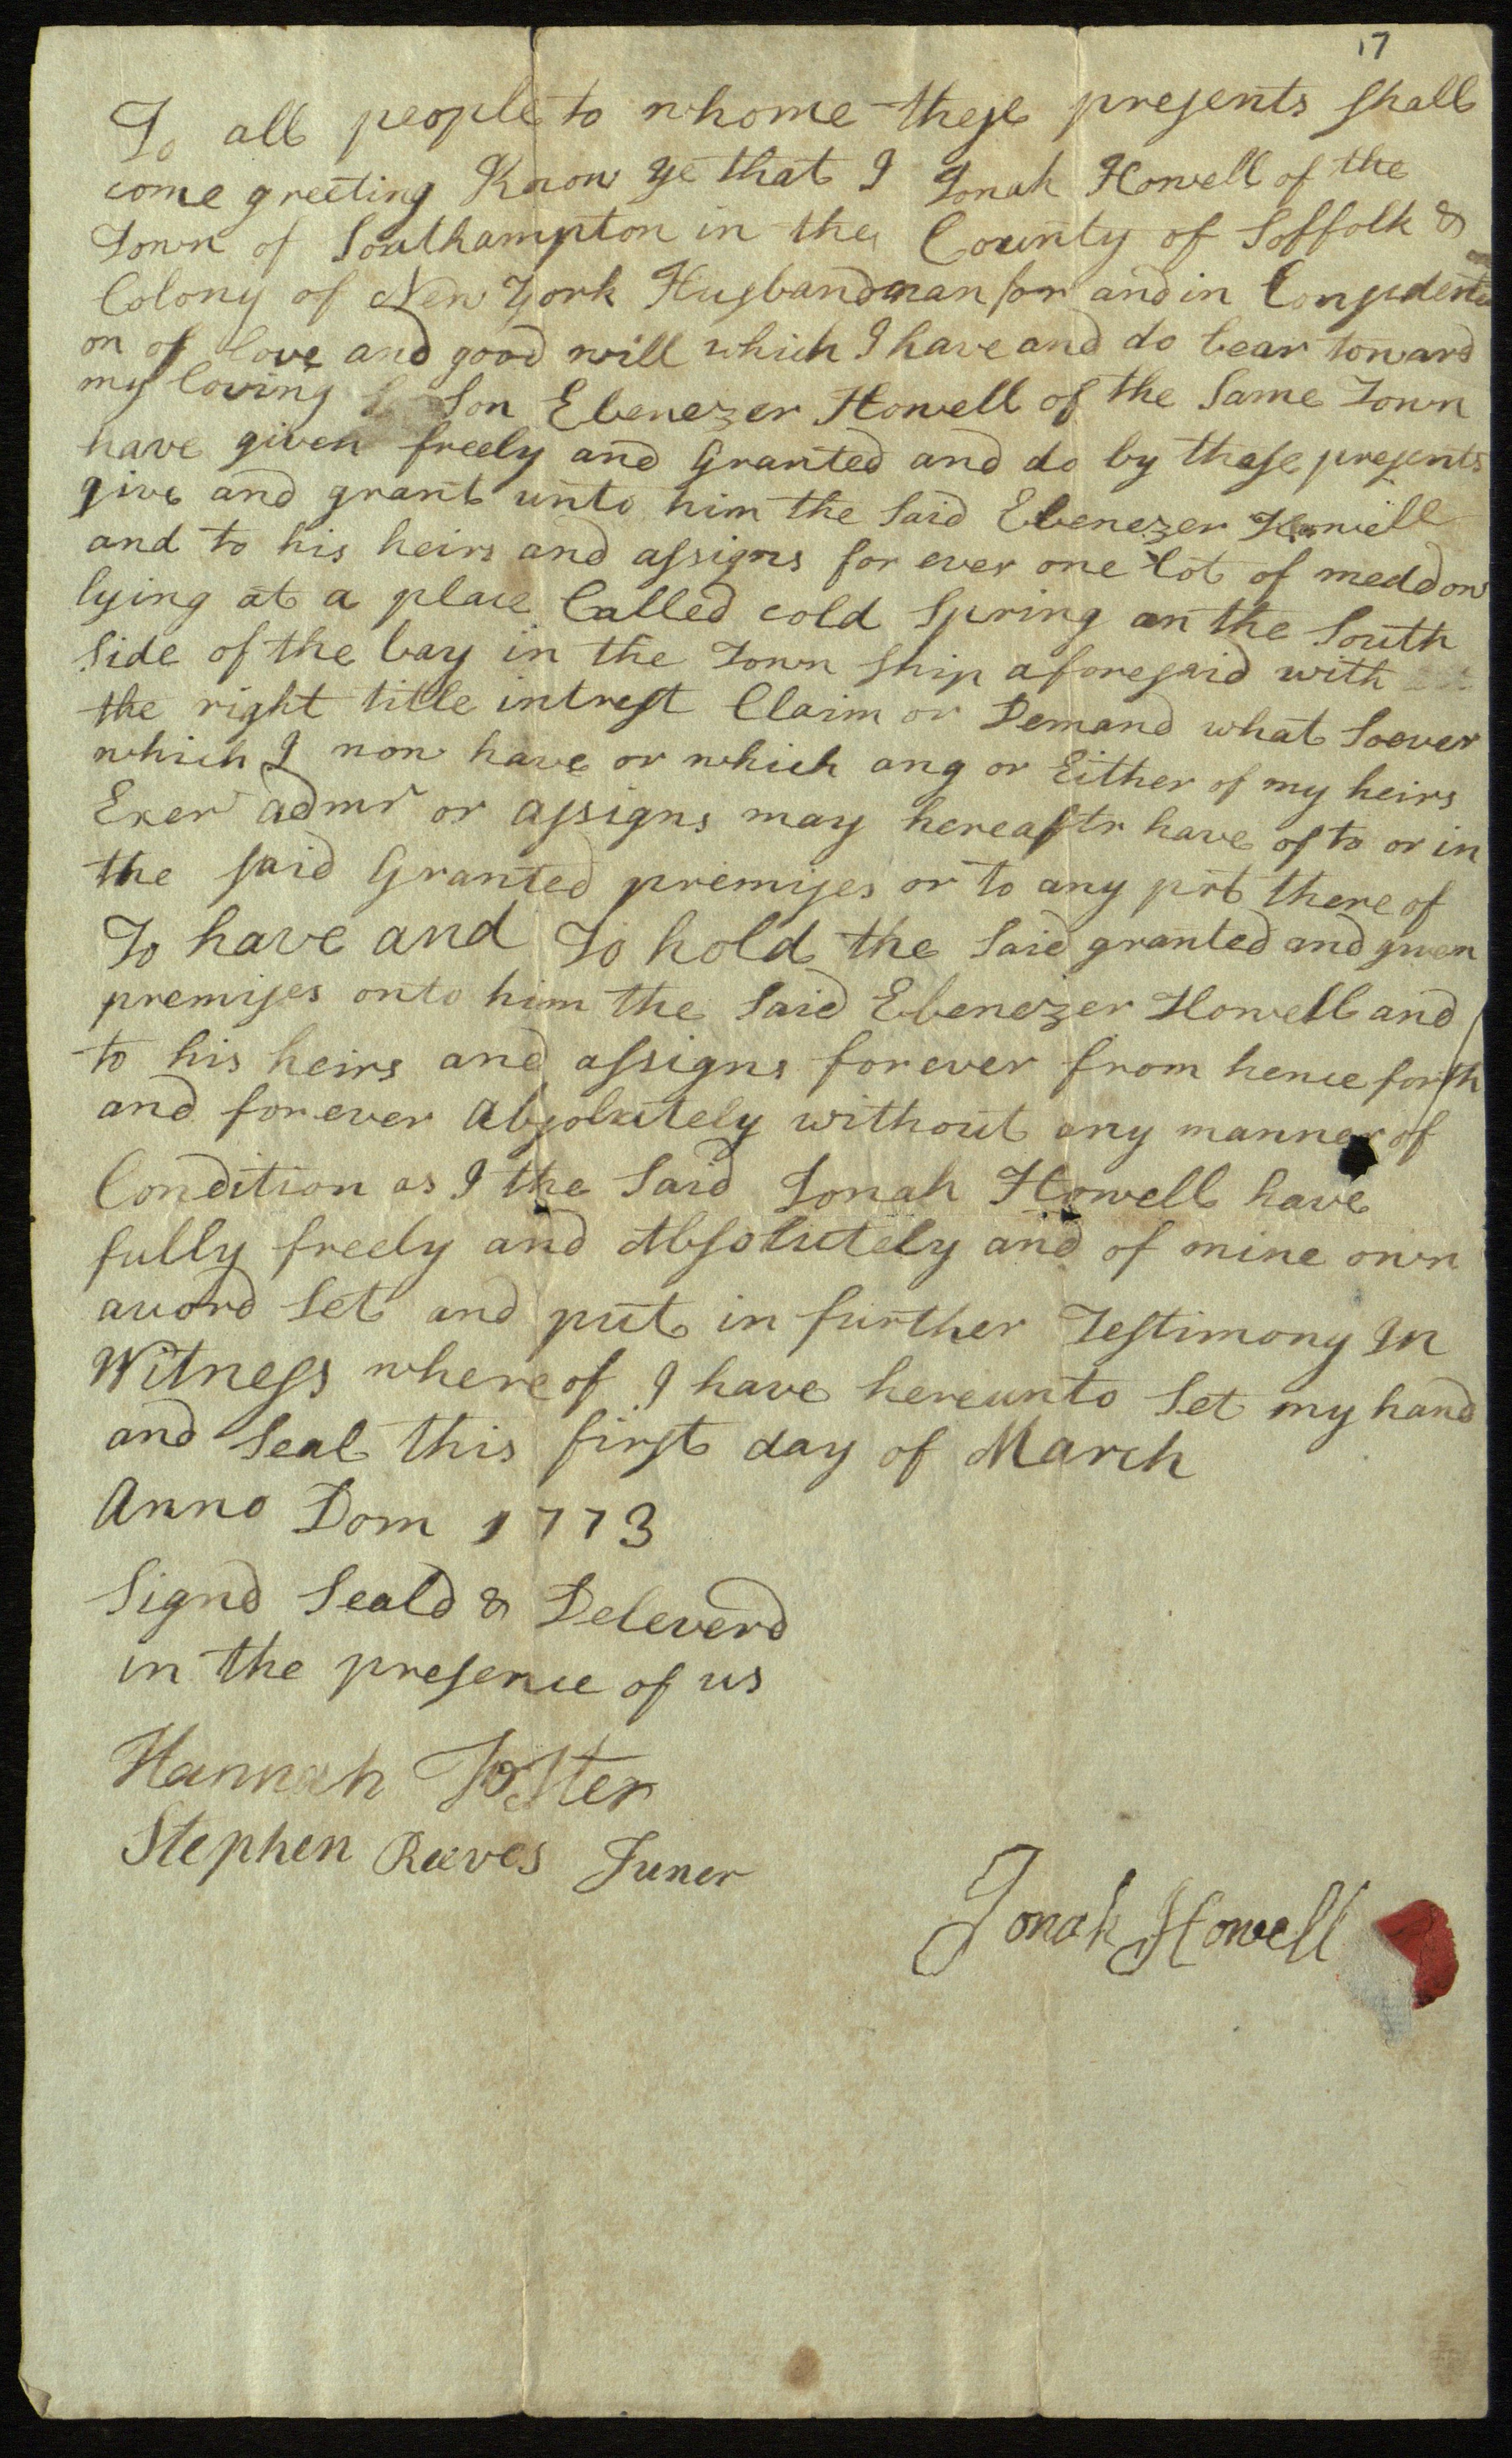 17
To all people to whome these presents shall
come greeting Know ye that I Jonah Howell of the
Town of Southampton in the County of Soffolk &
Colony of New York Husbandman for and in Considerti
on of love and good will which I have and do bear toward
my loving Son Ebenezer Howell of the Same Town
have given freely and Granted and do by these presents
give and grant unto him the Said Ebenezer Howell
and to his heirs and assigns for ever one lot of meddow
lying at a place Called cold Spring on the South
Side of the bay in the Town ship aforesaid with
the right title intrest Claim or Demand what Soever
which I now have or which any or Either of my heirs
Exer admr or assigns may hereaftr have of to or in
the said Granted premises or to any prt there of
To have and To hold the Said granted and given
premises onto him the Said Ebenezer Howell and
to his heirs and assigns forever from hence forth
and forever Absolutely without any manner of
Condition as I the Said Jonah Howell have
fully freely and Absolutely and of mine own
acord Set and put in further Testimony In
Witness where of I have hereunto Set my hand
and Seal this first day of March
Anno Dom 1773
Signd Seald & Deleverd
in the presence of us
Hannah Foster
Stephen Reeves Juner
Jonah Howell